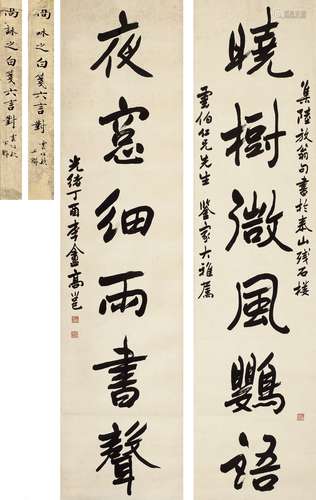 集陸放翁句書於泰山殘石樓
曉樹微風鸚語
雲伯仁兄先生 鑒家大雅屬
夜窗細雨書聲
光緒丁酉李盦高邕
白箋六言對
白箋六言對